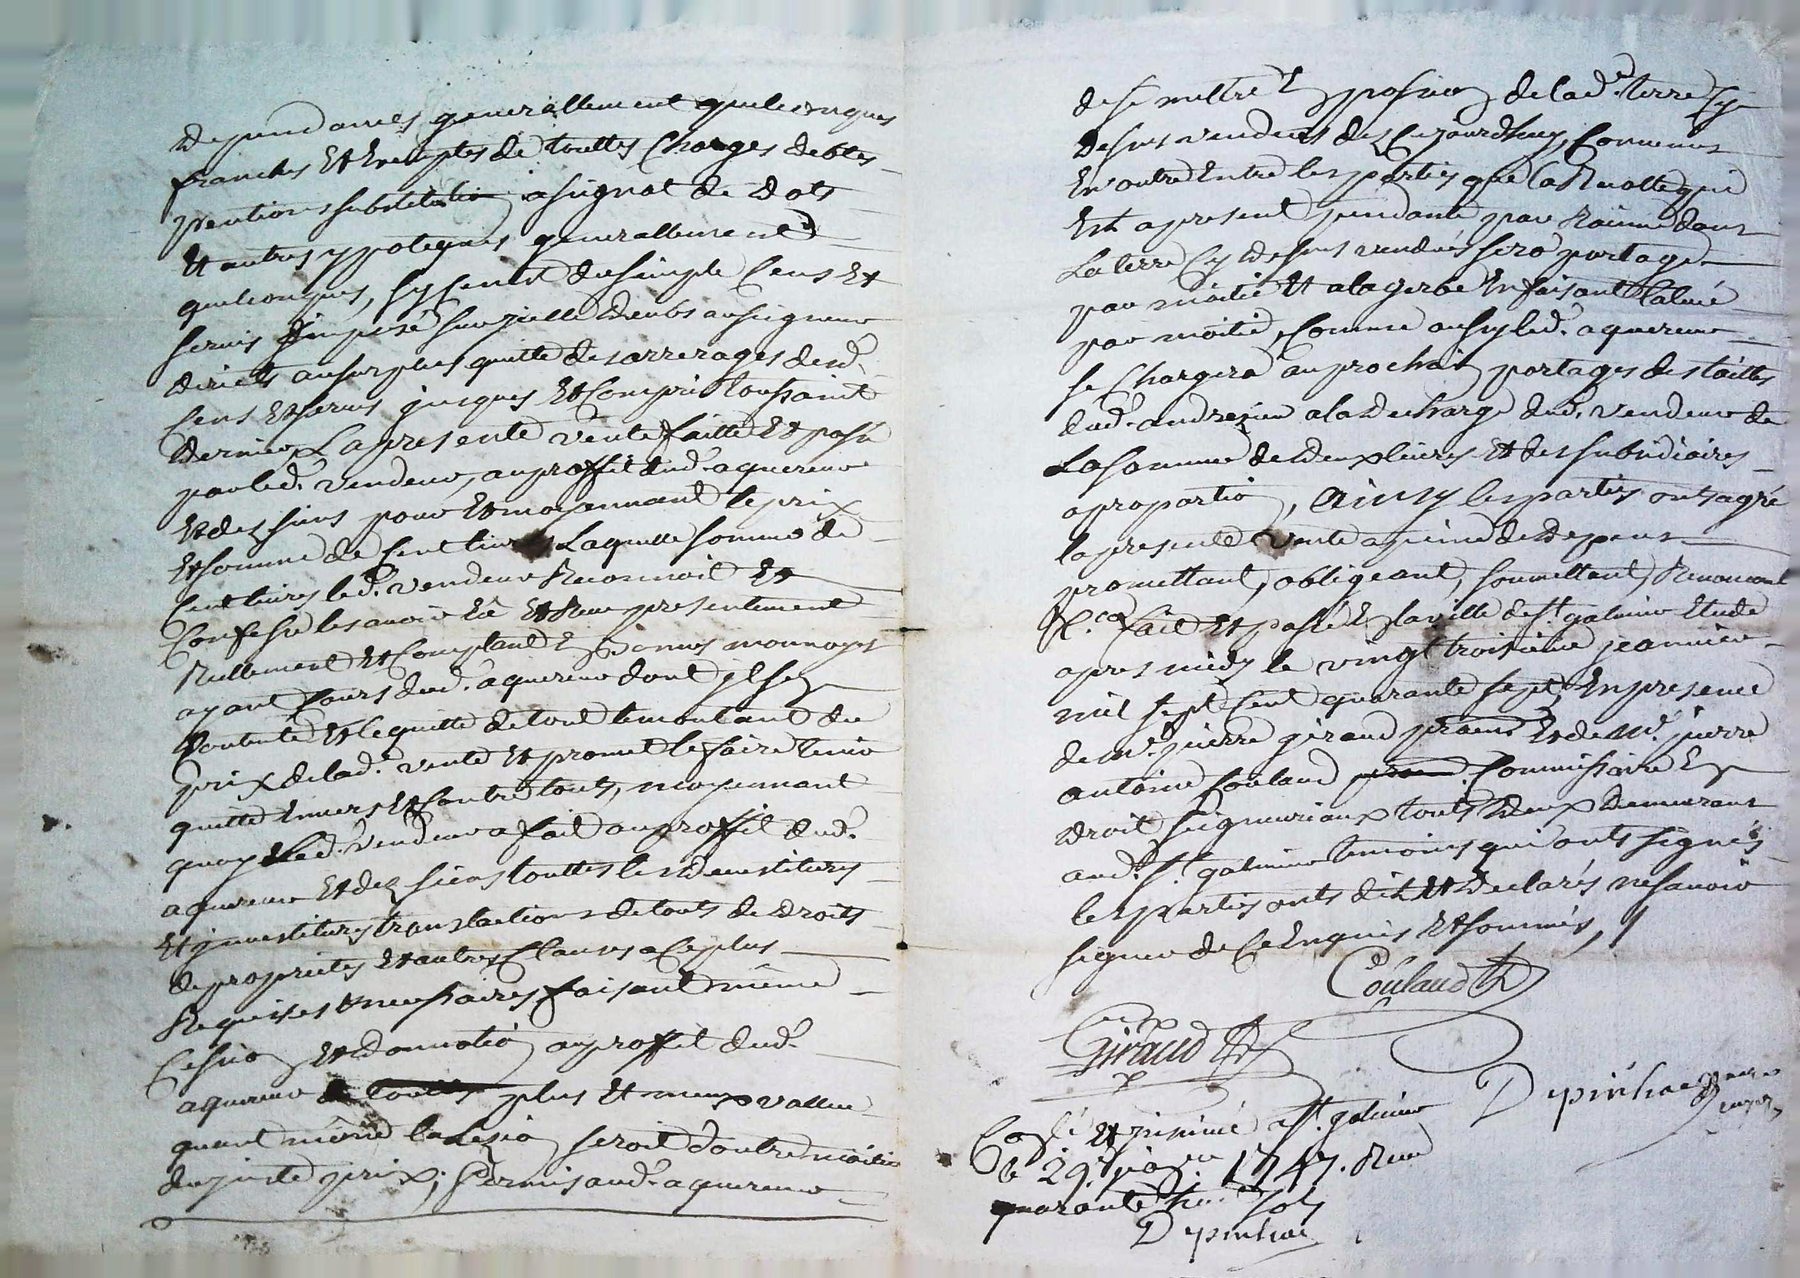 dependances generallement quelconques
franches Et Exemptes de touttes Charges debtes
pentions substitution asignat de Dots
Et autres ypoteques generallement
quelconques, sy ce n'est du simple Cens Et
servis jmposé sur jcelle deubs au seigneur
directs au surplus quitte des arrerages desd.
Cens Et servis jusques Et Compris toussaint
dernier La presente vente faitte Et passé
par led. vendeur, au proffit dud. aquereur
Et des siens pour Et moyennant le prix
Et somme de Cent livres Laquelle somme de
Cent livres led. vendeur Reconnoit Et
Confesse les avoir Eü Et Reçu presentement
Reellement Et Comptant En Bonnes monnoyes
ayant Cours dud. aquereur dont jl se
Contente Et le quitte de tout le montant du
prix de lad. vente Et promet le faire tenir
quitte Envers Et Contre touts, moyennant
quoy led. vendeur a fait au proffit dud.
aquereur Et des siens touttes les devestitures
Et jnvestitures translactions de touts de droits
de proprietés Et autres Clauses a Ce plus
Requises necessaires faisant même
Cession Et donnation au proffit dud.
aquereur plus Et mieux vallue
quant même la Lesion seroit d'outre moitié
du juste prix; Permis aud. aquereur
de se mettre En posession de lad. terre Cy
dessus vendues des Cejourdhuy, Convenus
En outre Entre les parties que la Recolte qui
Est apresent pendante par Racine dans
La terre Cy dessus vendues sera partagé
par moitié Et a la gerbe En faisant
par moitié, Comme aussy led. aquereur
se Chargera au prochain portages des tailles
dud. andrezieu a la decharge dud. vendeur de
La somme de deux livres Et des subsidiaires
a proportion, Ainsy les parties onts agréé
la presente vente a peine de depens
promettant, obligeant, soumettant, Renoncant
&.ca fait Et passé En la ville de st. galmier Etude
apres midy le vingt troisieme jeanvier
mil sept Cent quarante sept, En presence
de Mr. pierre giraud praticn Et de Mr. pierre
antoine Coulaud Commissaire En
droit seigneuriaux touts deux demeurant
aud. st. galmier temoins qui onts signés
les parties onts dit Et declarés ne savoir
signer de Ce Enquis Et sommés,
Coulaud
Giraud
Depinhac
Col.lé Et jnsinué a st. galmier
le 29e janer. 1747. Reçu
quarante huit sols
Depinhac